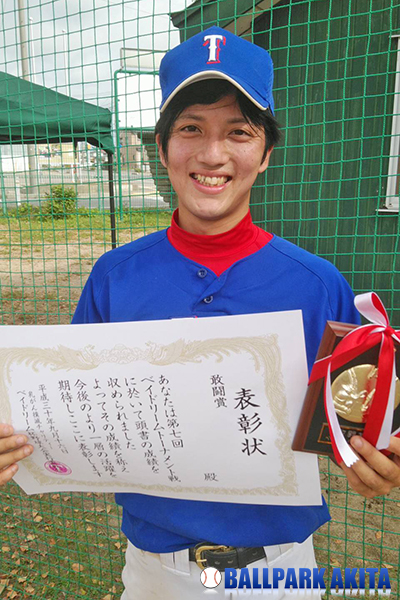 T
表彰状
敢闘賞
殿
あなたは第二回
ベイドリームトーナメント戦
に於いて頭書の成績を
収められました
よってその成績を称え
今後のより一層の活躍を
期待しここに表彰します
BALLPARK AKITA